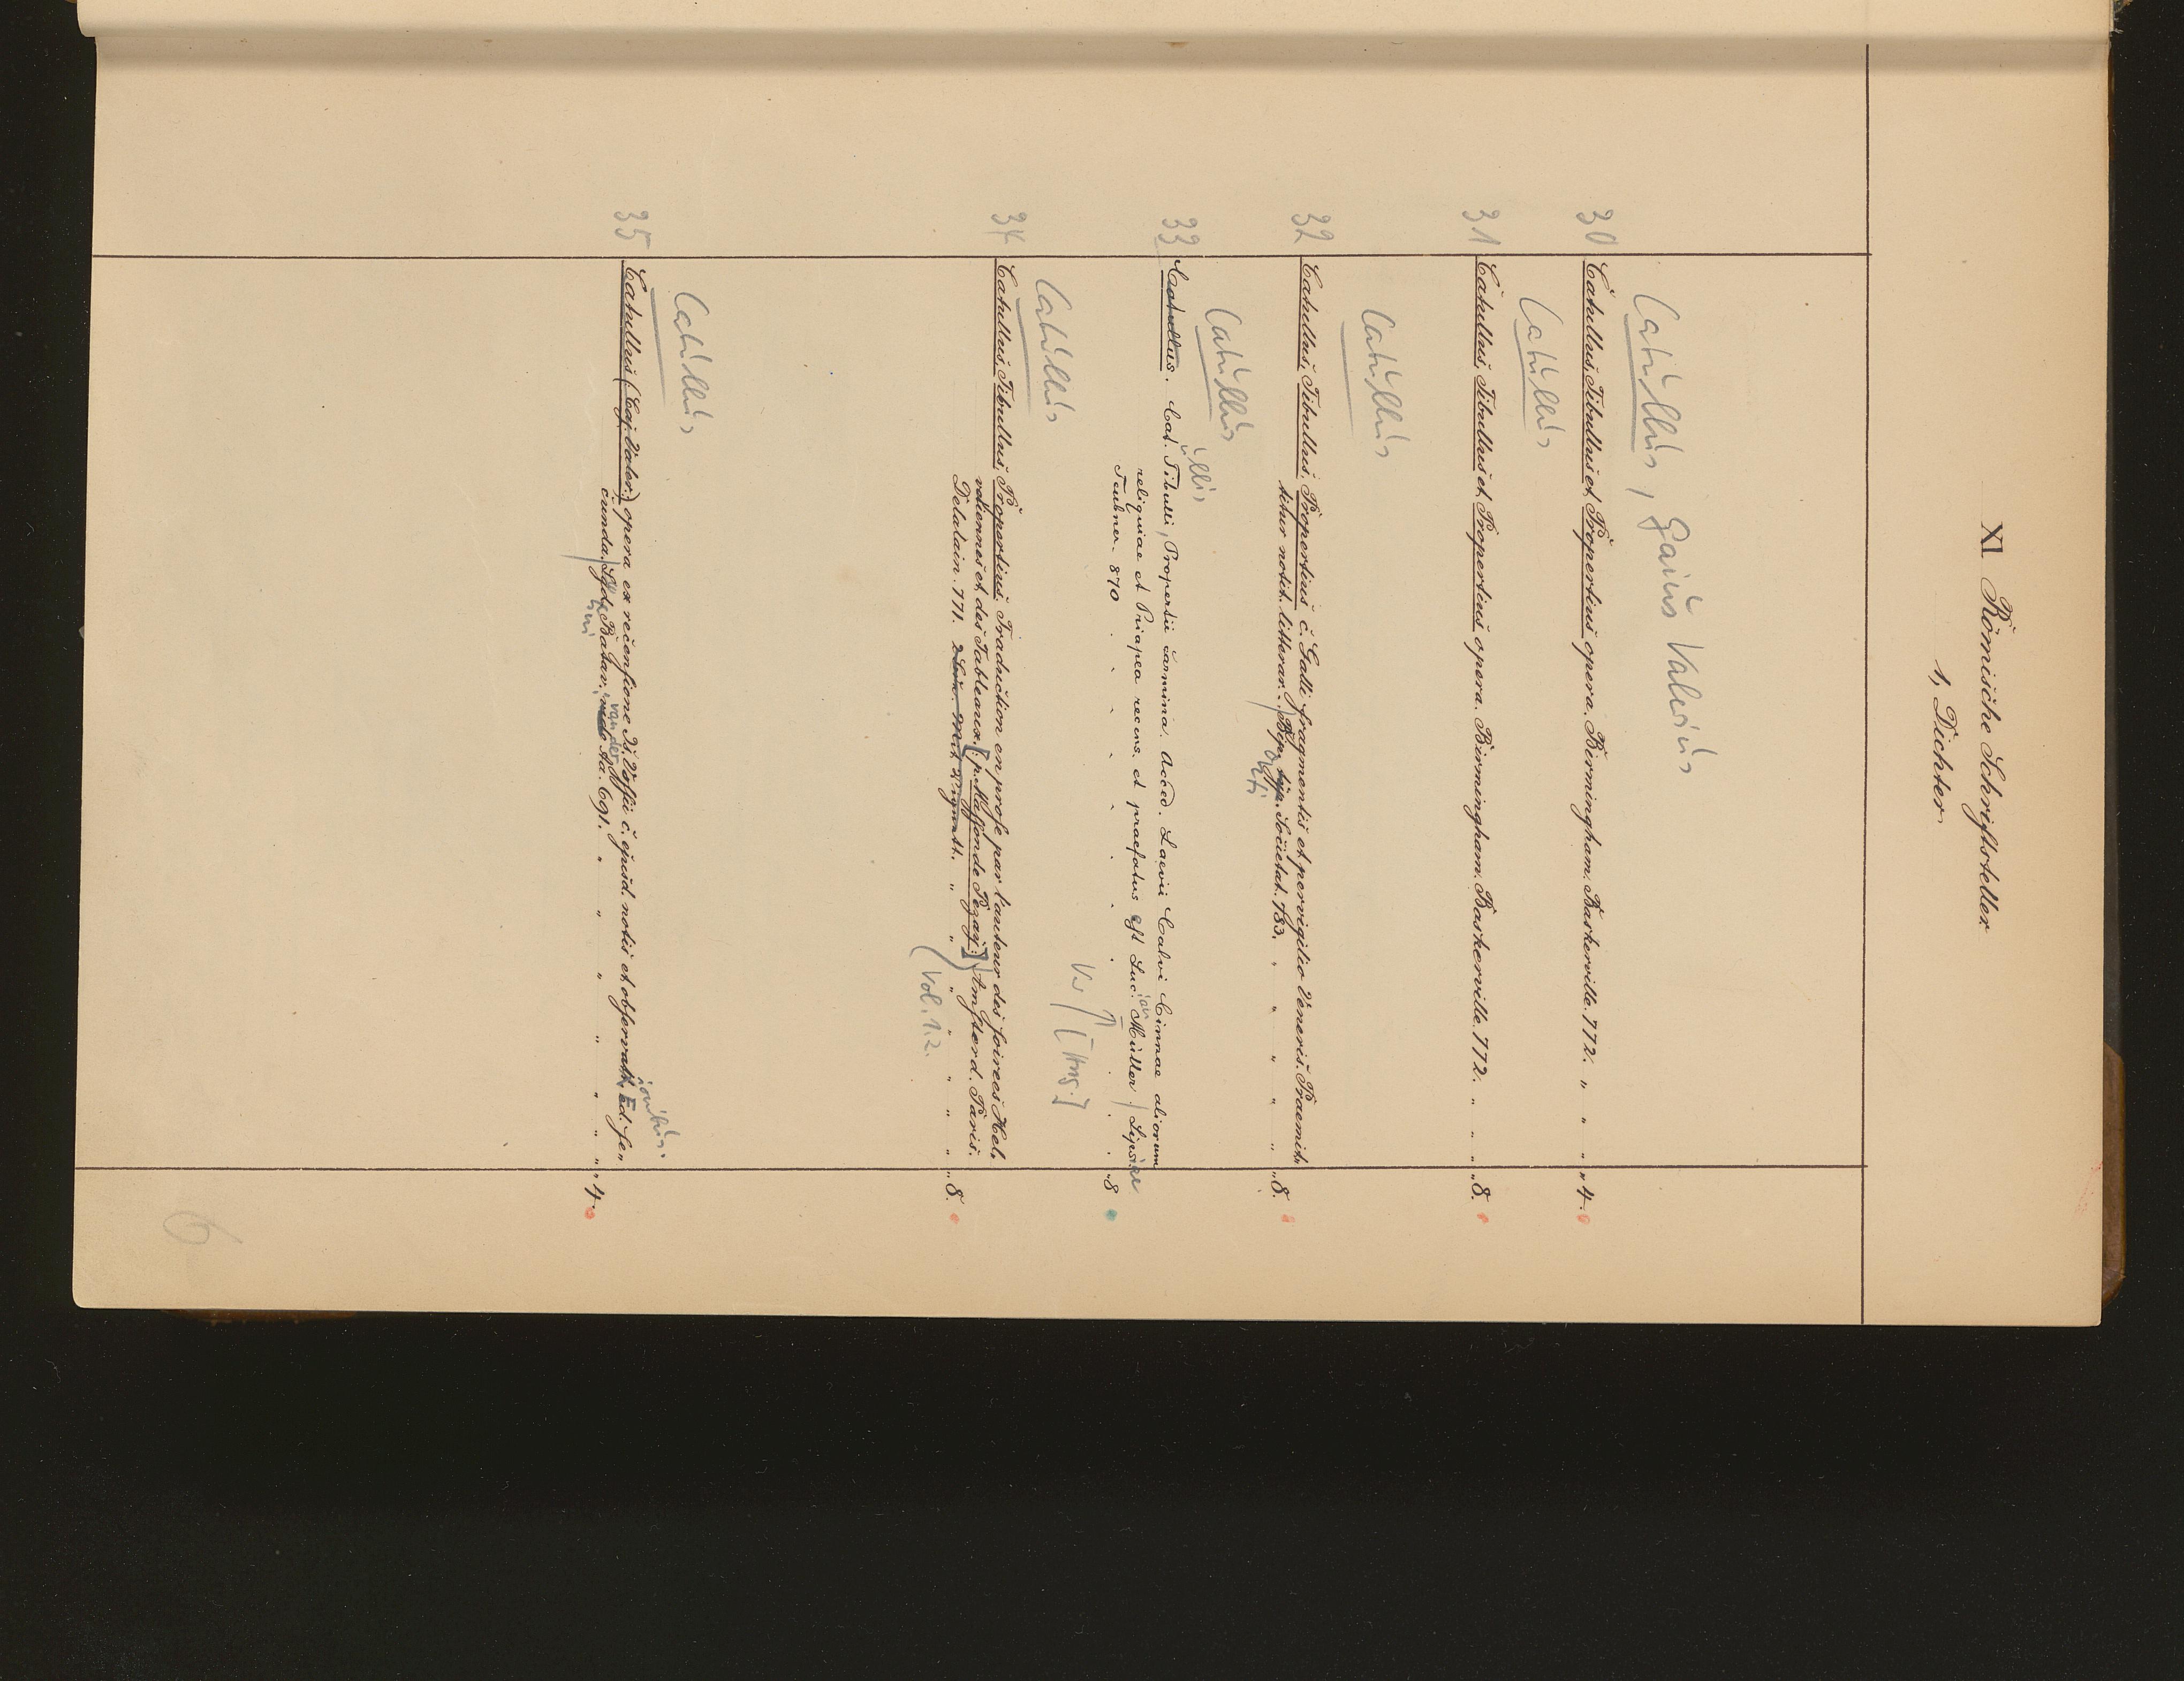 XI. Römische Schriftsteller
1, Dichter
Catullus, Gaius Valerius
30 Catullus, Tibullus et Propertius opera. Birmingham. Baskerville. 772. " " " " 4.
Catullus
31 Catullus, Tibullus et Propertius opera. Birmingham. Baskerville. 772. " " " " 8.
Catullus
32 Catullus, Tibullus, Propertius c. Galli fragmentis et pervigilio Veneris. Praemit„
titur notit. litterar. / Bip. typ. Societat. 783. " " " " " " 8.
Catullus
33 Catullus. Cat. Tibulli, Propertii carmina. Acced. Laevii Calvi Cinnae aliorum
reliquiae et Priapea recens. et praefatus est Luc. Müller / Lipsiae
Teubner. 870 . . . . . . . . . . . 8
Catullus
34 Catullus, Tibullus, Propertius. Traduction en prose par l'auteur des soirees Hel„
vetiennes et des Tableaux. [p. Massonde Pezay.] / Amsterd. Paris.
Delalain. 771. " " " " " " " 8.
(Vol. 1.2.
Catullus
35 Catullus (Caj. Valer.) opera ex recensione Is. Vossii c. ejusd. notis et observat. Ed. se„
ionibus
cunda. / Lugd. Batav. van der Aa. 691. " " " " " " " 4.
6